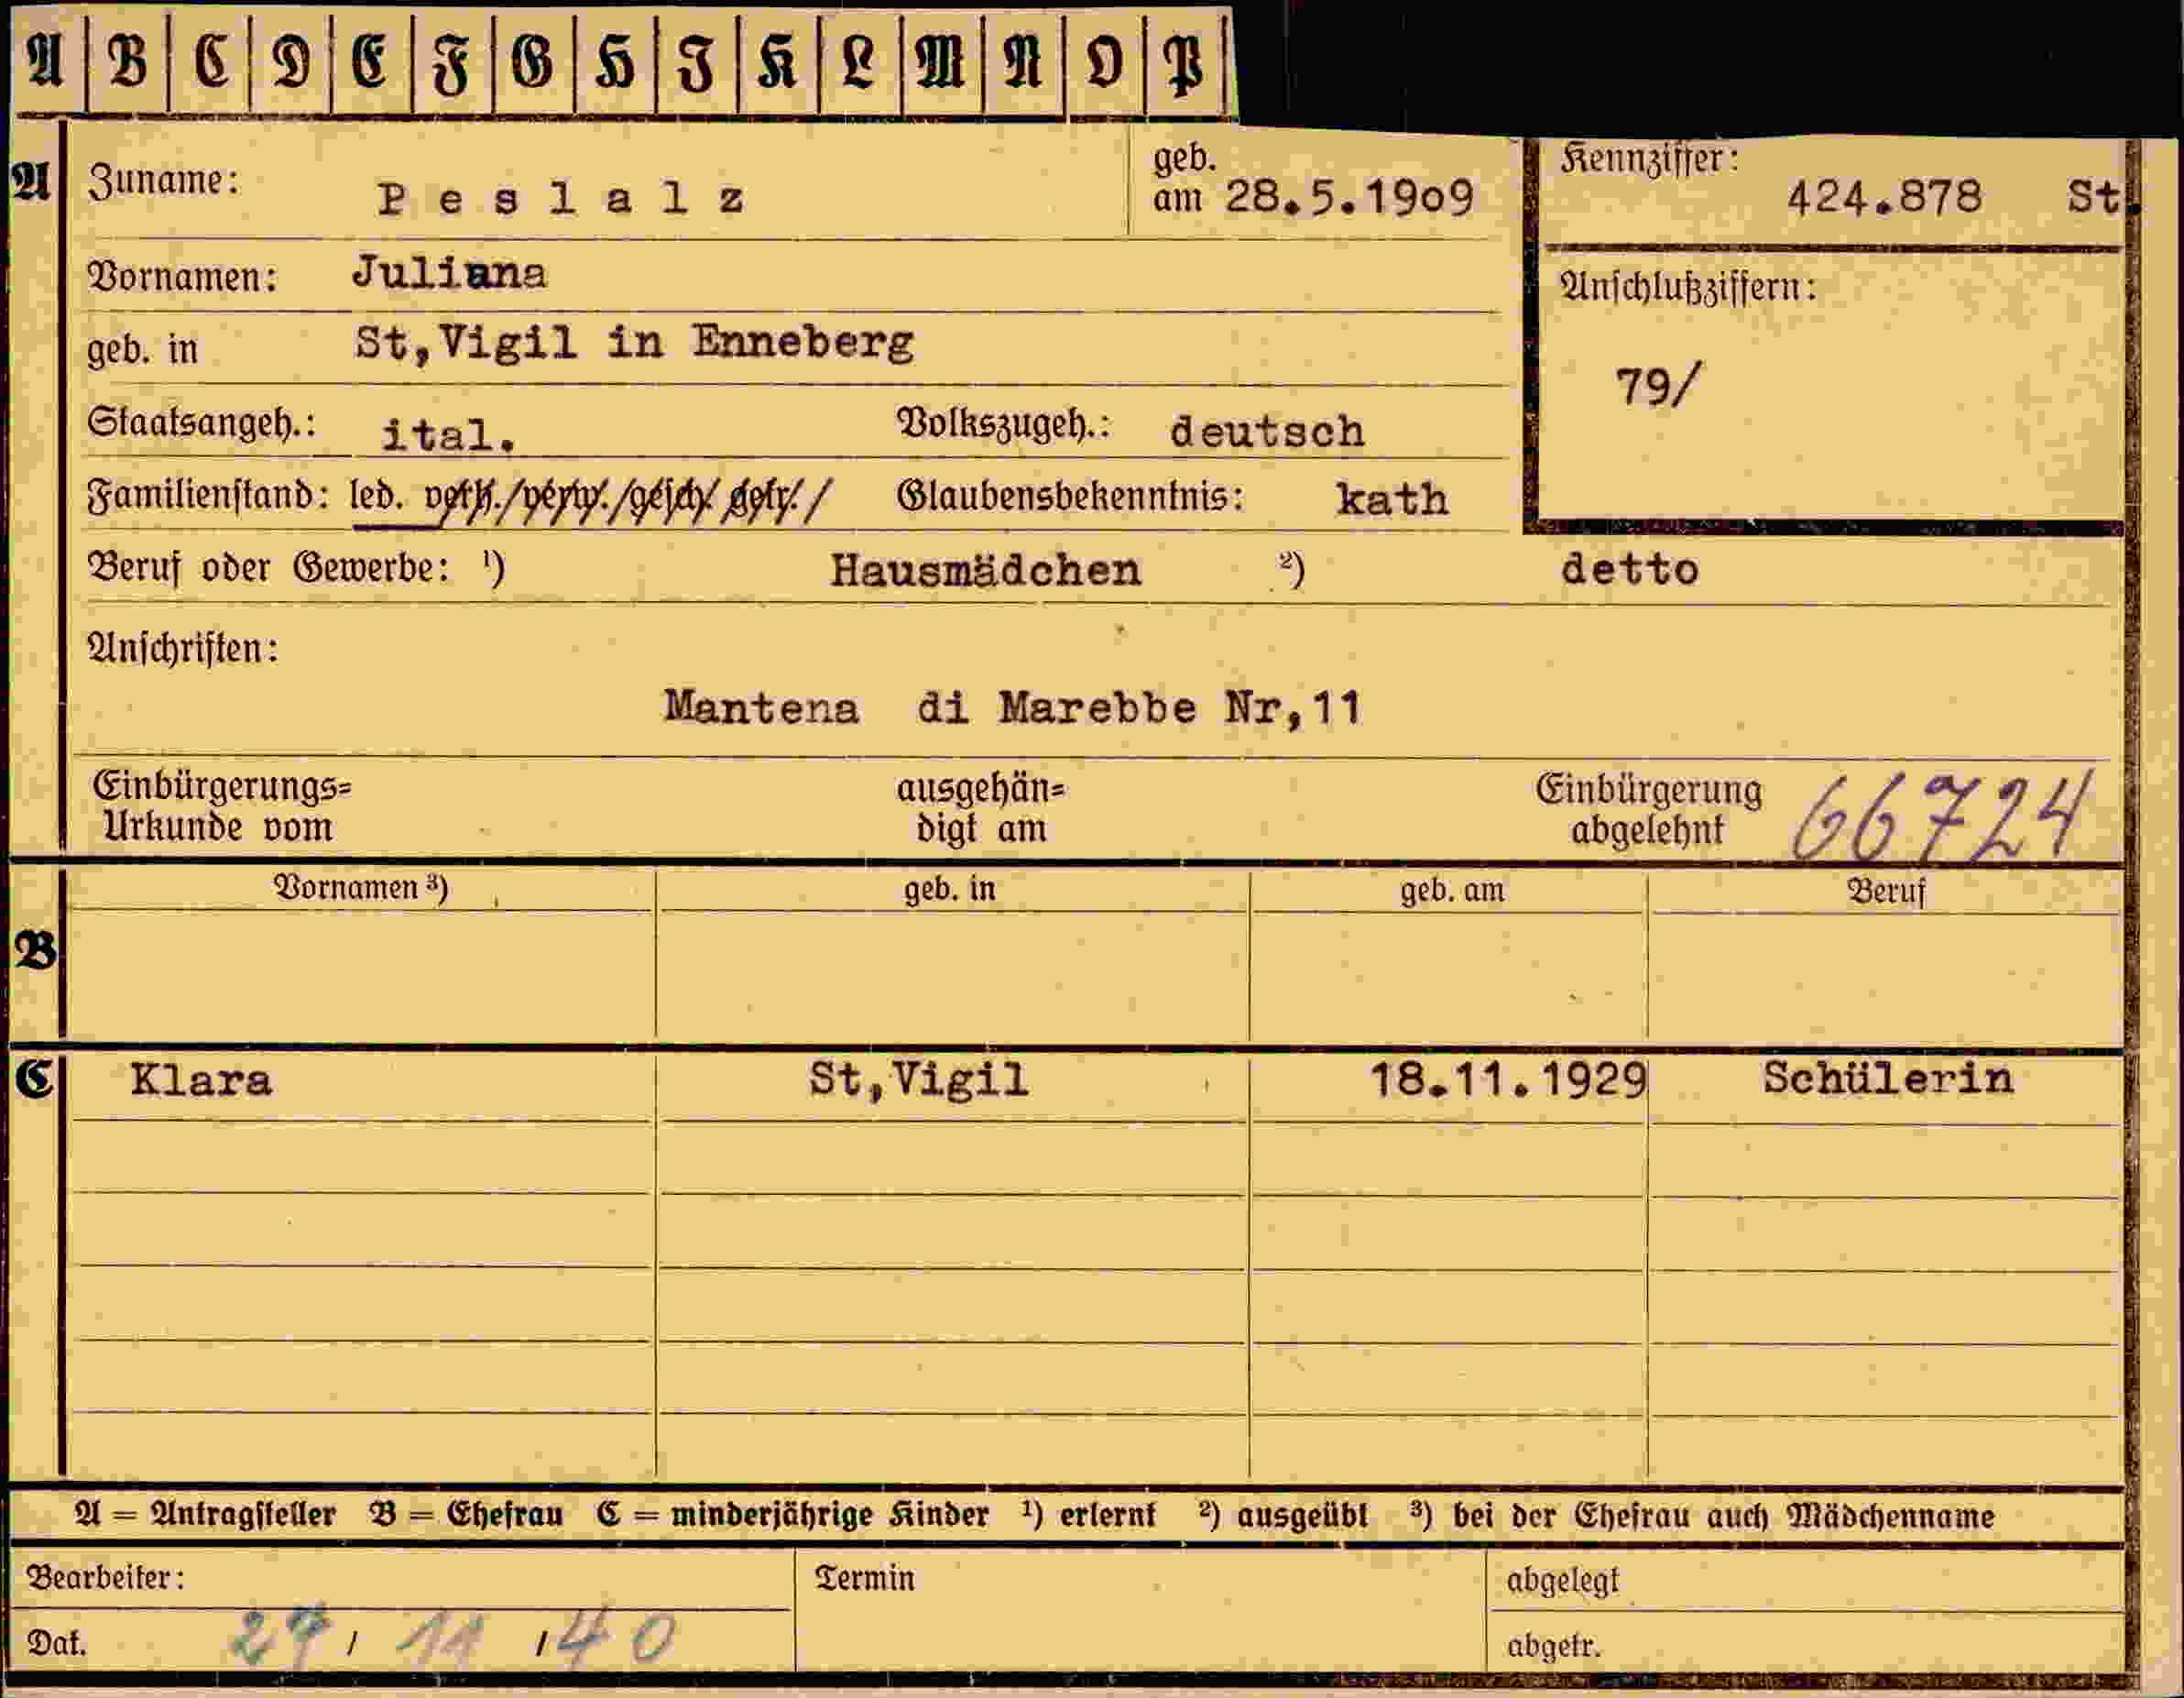 A B C D E F G H I K L M N O P
A Zuname: Peslalz geb. am 28.5.19o9 Kennziffer: 424.878 St.
Vornamen: Juliana Anschlußziffern:
geb. in St,Vigil in Enneberg 79/
Staatsangeh.: ital. Volkszugeh.: deutsch
Familienstand: led. verh./verw./gesch./getr./ Glaubensbekenntnis: kath
Beruf oder Gewerbe: ¹) Hausmädchen ²) detto
Anschriften:
Mantena di Marebbe Nr,11
Einbürgerungs= ausgehän= Einbürgerung 66724
Urkunde vom digt am abgelehnt
Vornamen ³) geb. in geb. am Beruf
B
C Klara St,Vigil 18.11.1929 Schülerin
A = Antragsteller B = Ehefrau C = minderjährige Kinder ¹) erlernt ²) ausgeübt ³) bei der Ehefrau auch Mädchenname
Bearbeiter: Termin abgelegt
Dat. 27/ 11 /40 abgetr.